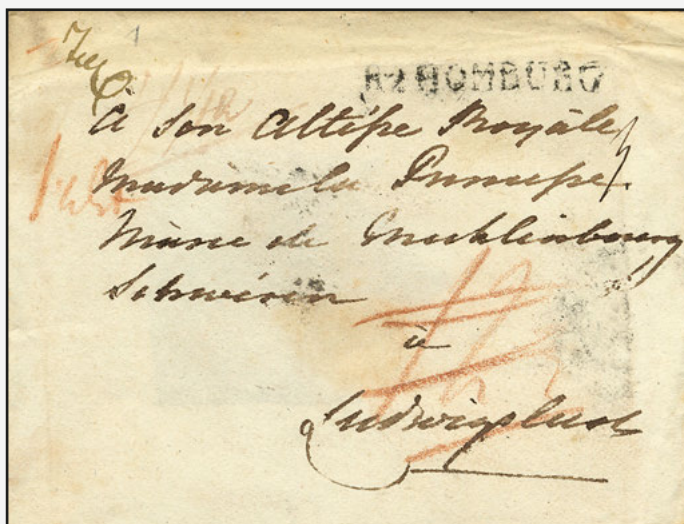 R2 HOMBURG
A Son Altesse Royale
Madame la Princesse
Marie de Mecklenbourg
Schwérin
à
Ludwigslust